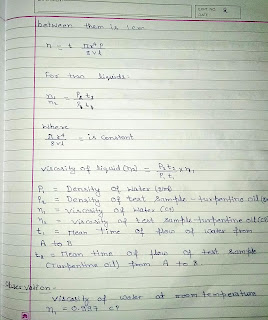 between them is 1 cm
η = t πr⁴P / 8vl
For two liquids:
η₁/η₂ = P₁t₁ / P₂t₂
where
πr⁴ / 8vl = is constant
viscosity of liquid (η₂) = P₂t₂ / P₁t₁ × η₁
P₁ = Density of water
P₂ = Density of test sample - turpentine oil
η₁ = Viscosity of water (CP)
η₂ = viscosity of test sample turpentine oil (CP)
t₁ = Mean time of flow of water from
A to B
t₂ = Mean time of flow of test sample
(Turpentine oil) from A to B.
Observation -
Viscosity of water at room temperature
η₁ = CP